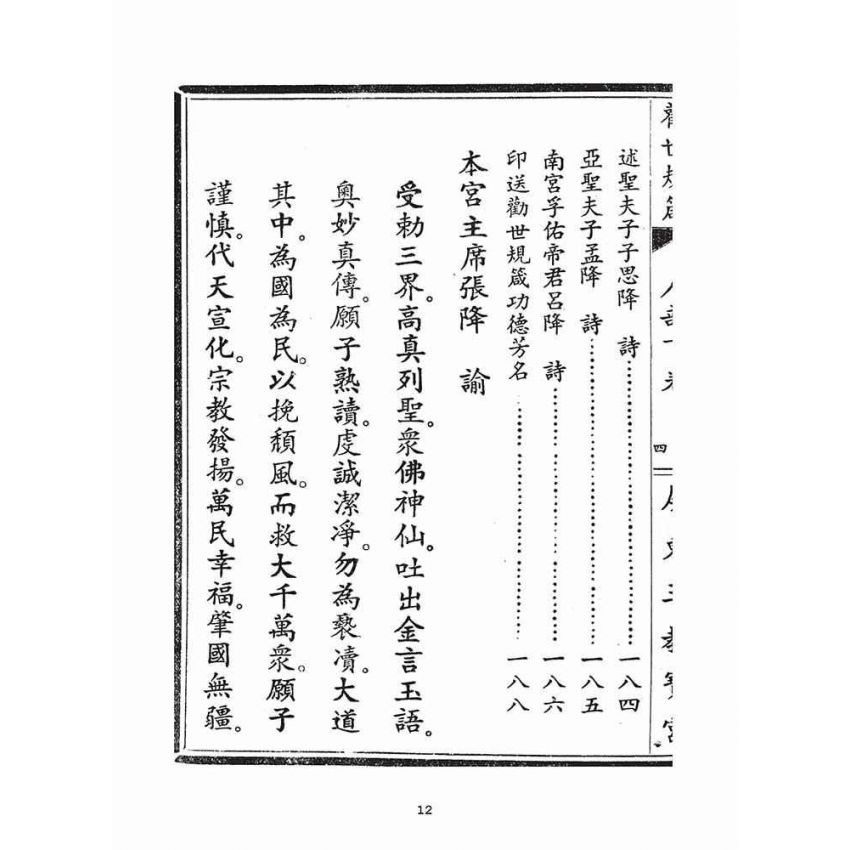 四
述聖夫子子思降　詩……………………一八四
亞聖夫子孟降　詩……………………一八五
南宮孚佑帝君呂降　詩……………………一八六
印送勸世規箴功德芳名……………………一八八
本宮主席張降　諭
受勅三界。高真列聖。衆佛神仙。吐出金言玉語。
奧妙真傳。願子熟讀。虔誠潔淨。勿為褻瀆。大道
其中。為國為民。以挽頽風。而救大千萬衆。願子
謹慎。代天宣化。宗教發揚。萬民幸福。肇國無疆。
12